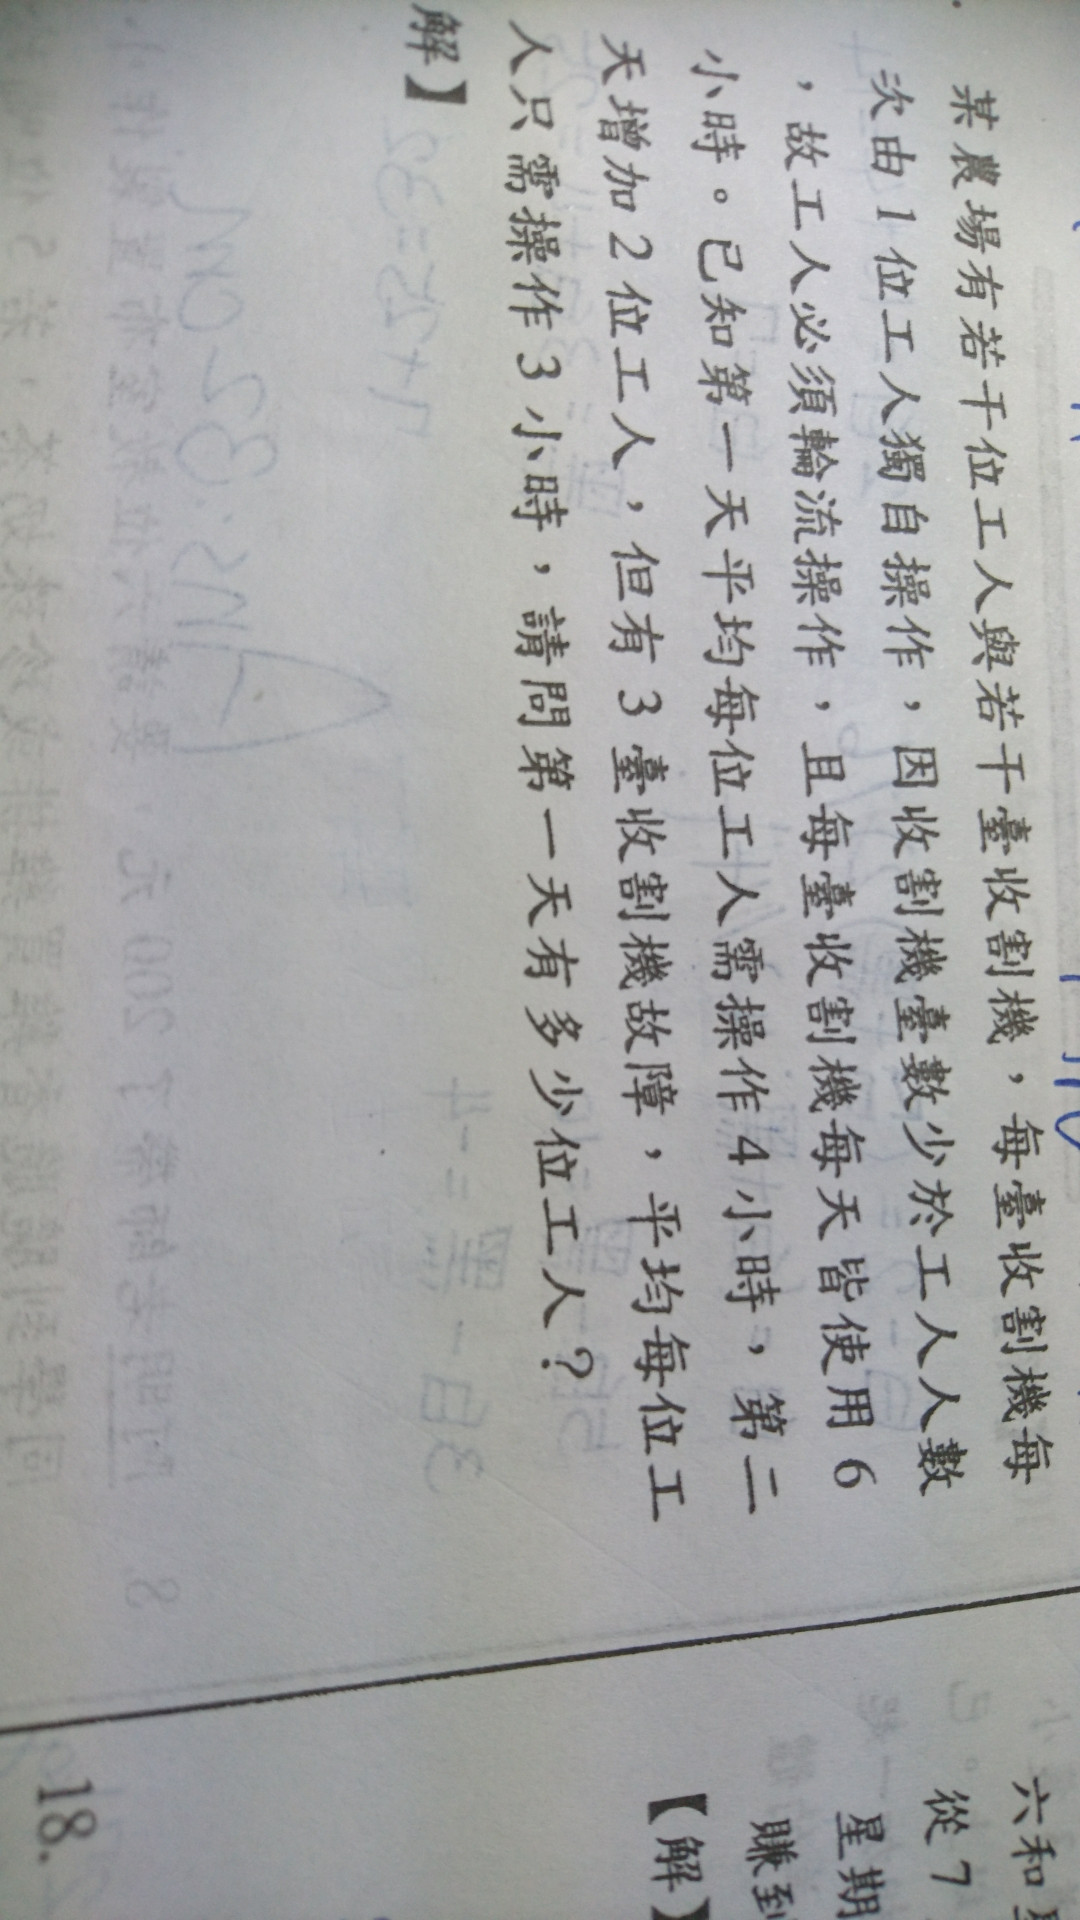 某農場有若干位工人與若干臺收割機，每臺收割機每
次由1位工人獨自操作，因收割機臺數少於工人人數
，故工人必須輪流操作，且每臺收割機每天皆使用6
小時。已知第一天平均每位工人需操作4小時，第二
天增加2位工人，但有3臺收割機故障，平均每位工
人只需操作3小時，請問第一天有多少位工人？
解】
18.
六和
從7
星期
賺到
【解】